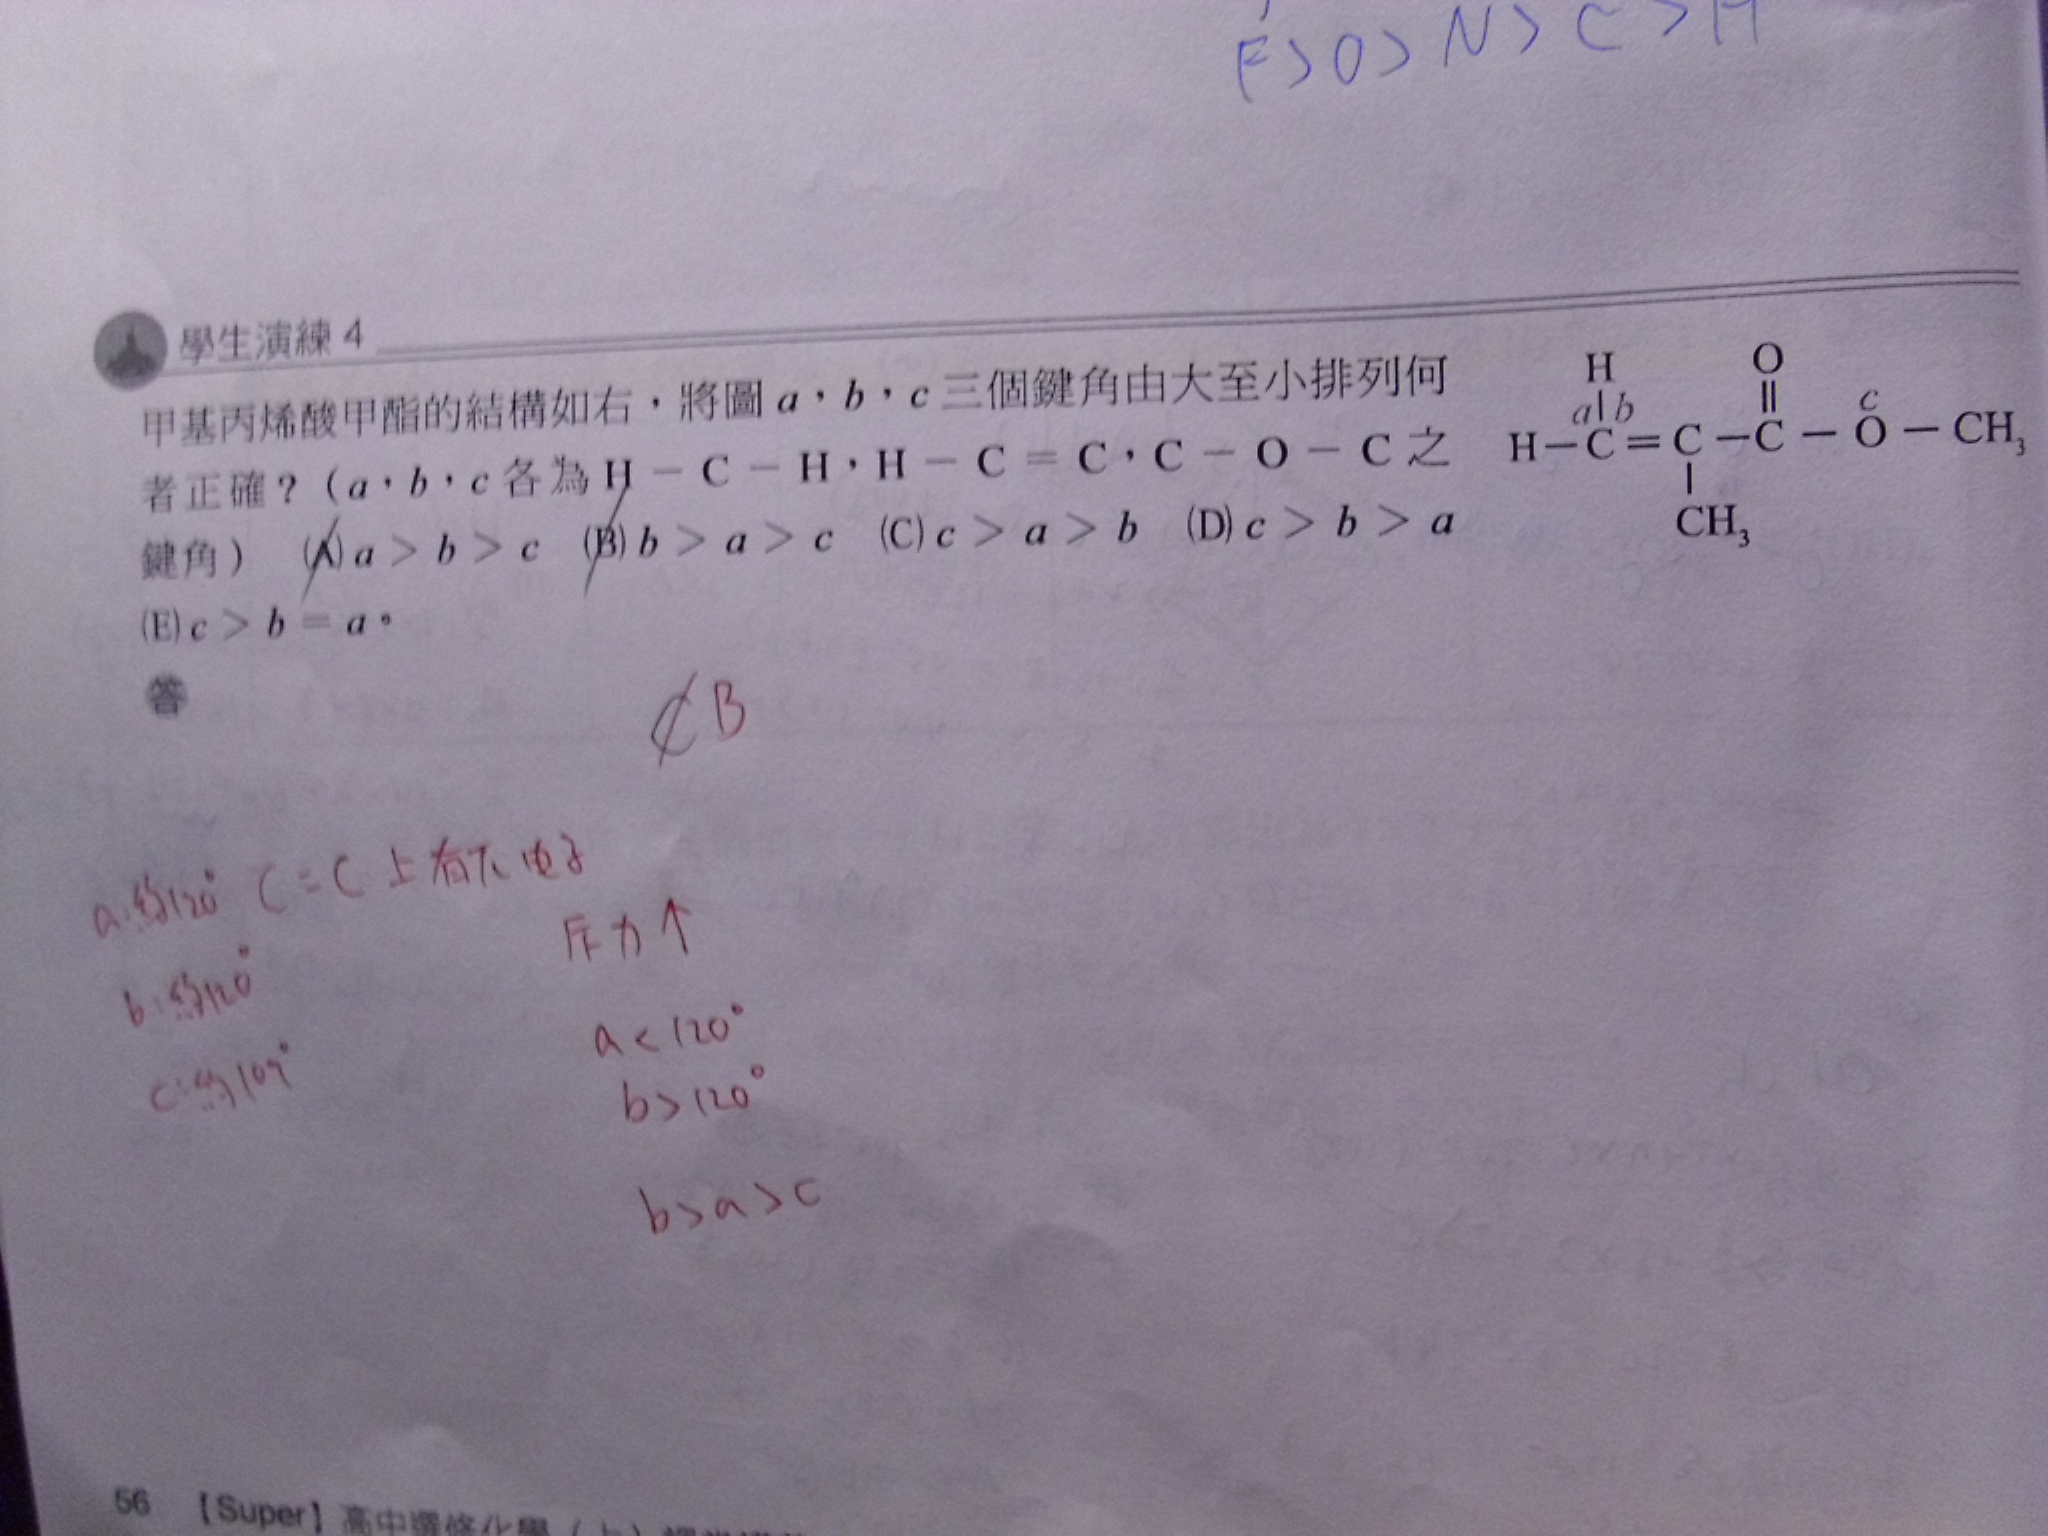 F>O>N>C>H
學生演練 4
甲基丙烯酸甲酯的結構如右，將圖 a，b，c 三個鍵角由大至小排列何
者正確？（a，b，c 各為 H － C － H，H － C ＝ C，C － O － C 之
鍵角） (A) a > b > c (B) b > a > c (C) c > a > b (D) c > b > a
(E) c > b = a。
H O
a b c
H－C＝C－C－O－CH₃
CH₃
答
C B
a:約120° C=C 上有π电子
斥力↑
b:約120°
a<120°
c:約109°
b>120°
b>a>c
56 【Super】高中選修化學（上）